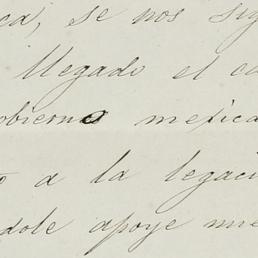 ca, se nos sig
llegado el ca
obierno mexica
o a la legaci
dole apoye nue